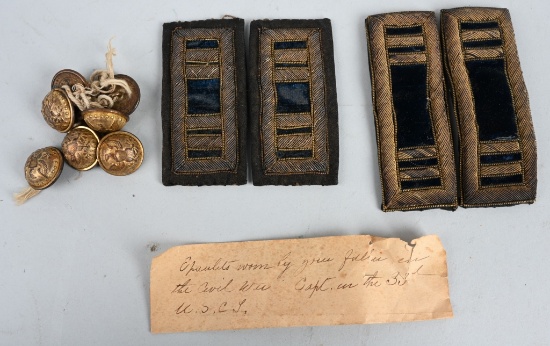 Epaulets worn by your father in
the Civil War Capt. in the 33rd
U.S.C.T.